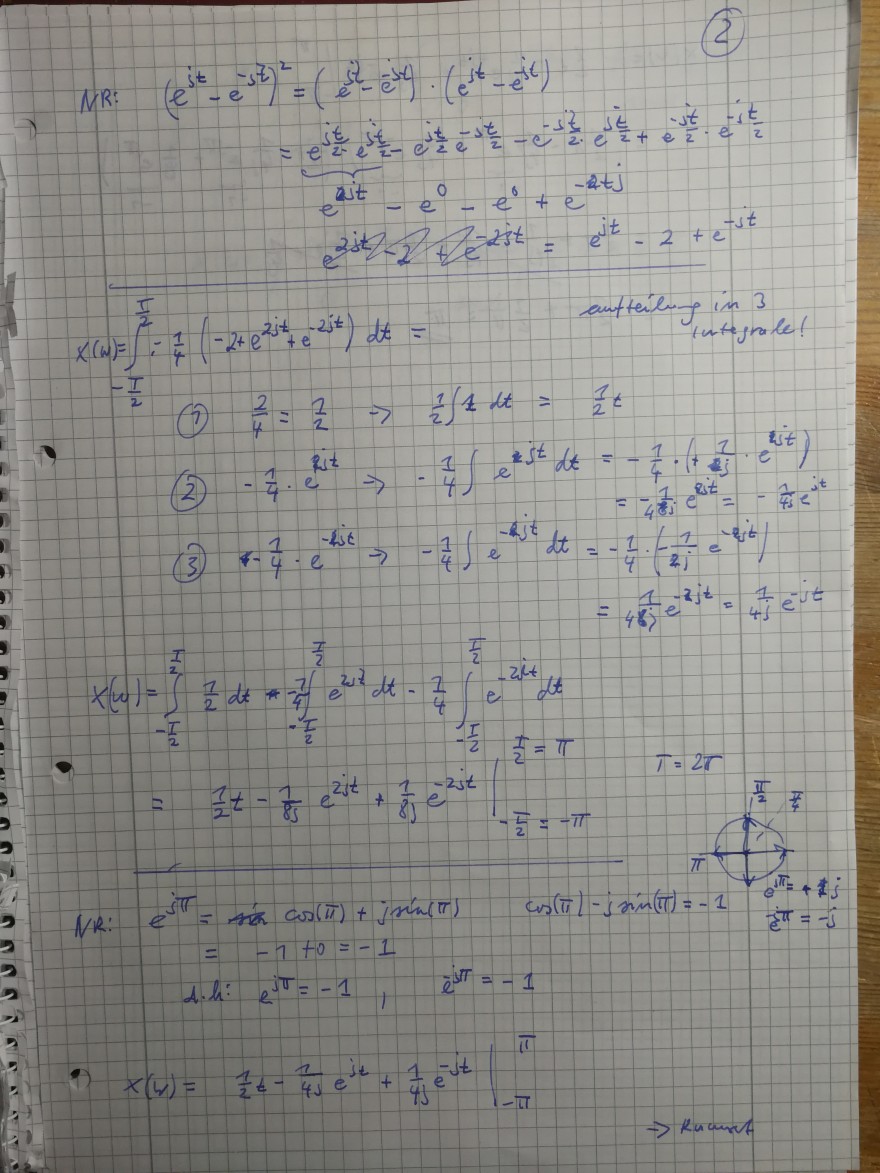 ②
NR: (e^{jt} - e^{-jt})^2 = (e^{jt} - e^{-jt}) · (e^{jt} - e^{-jt})
= e^{jt/2} · e^{jt/2} - e^{jt/2} e^{-jt/2} - e^{-jt/2} · e^{jt/2} + e^{-jt/2} · e^{-jt/2}
e^{2jt} - e^0 - e^0 + e^{-2tj}
e^{2jt} - 2 + e^{-2jt} = e^{jt} - 2 + e^{-jt}
aufteilung in 3
integrale!
X(ω) = ∫_{-T/2}^{T/2} - 1/4 (-2 + e^{2jt} + e^{-2jt}) dt =
① 2/4 = 1/2 → 1/2 ∫ 1 dt = 1/2 t
② - 1/4 · e^{2jt} → - 1/4 ∫ e^{2jt} dt = - 1/4 · (+ 1/2j · e^{2jt})
= - 1/48j e^{2jt} = - 1/4j e^{jt}
③ - 1/4 · e^{-2jt} → - 1/4 ∫ e^{-2jt} dt = - 1/4 · (- 1/2j e^{-2jt})
= 1/48j e^{-2jt} = 1/4j e^{-jt}
X(ω) = ∫_{-T/2}^{T/2} 1/2 dt - 1/4 ∫_{-T/2}^{T/2} e^{2jt} dt - 1/4 ∫_{-T/2}^{T/2} e^{-2jt} dt
= 1/2 t - 1/8j e^{2jt} + 1/8j e^{-2jt} |_{-T/2 = -π}^{T/2 = π}
T = 2π
π/2 π/4
π
e^{jπ} = + j
e^{-jπ} = -j
NR: e^{jπ} = cos(π) + j sin(π) cos(π) - j sin(π) = -1
= -1 + 0 = -1
d.h: e^{jπ} = -1 , e^{-jπ} = -1
X(ω) = 1/2 t - 1/4j e^{jt} + 1/4j e^{-jt} |_{-π}^{π}
→